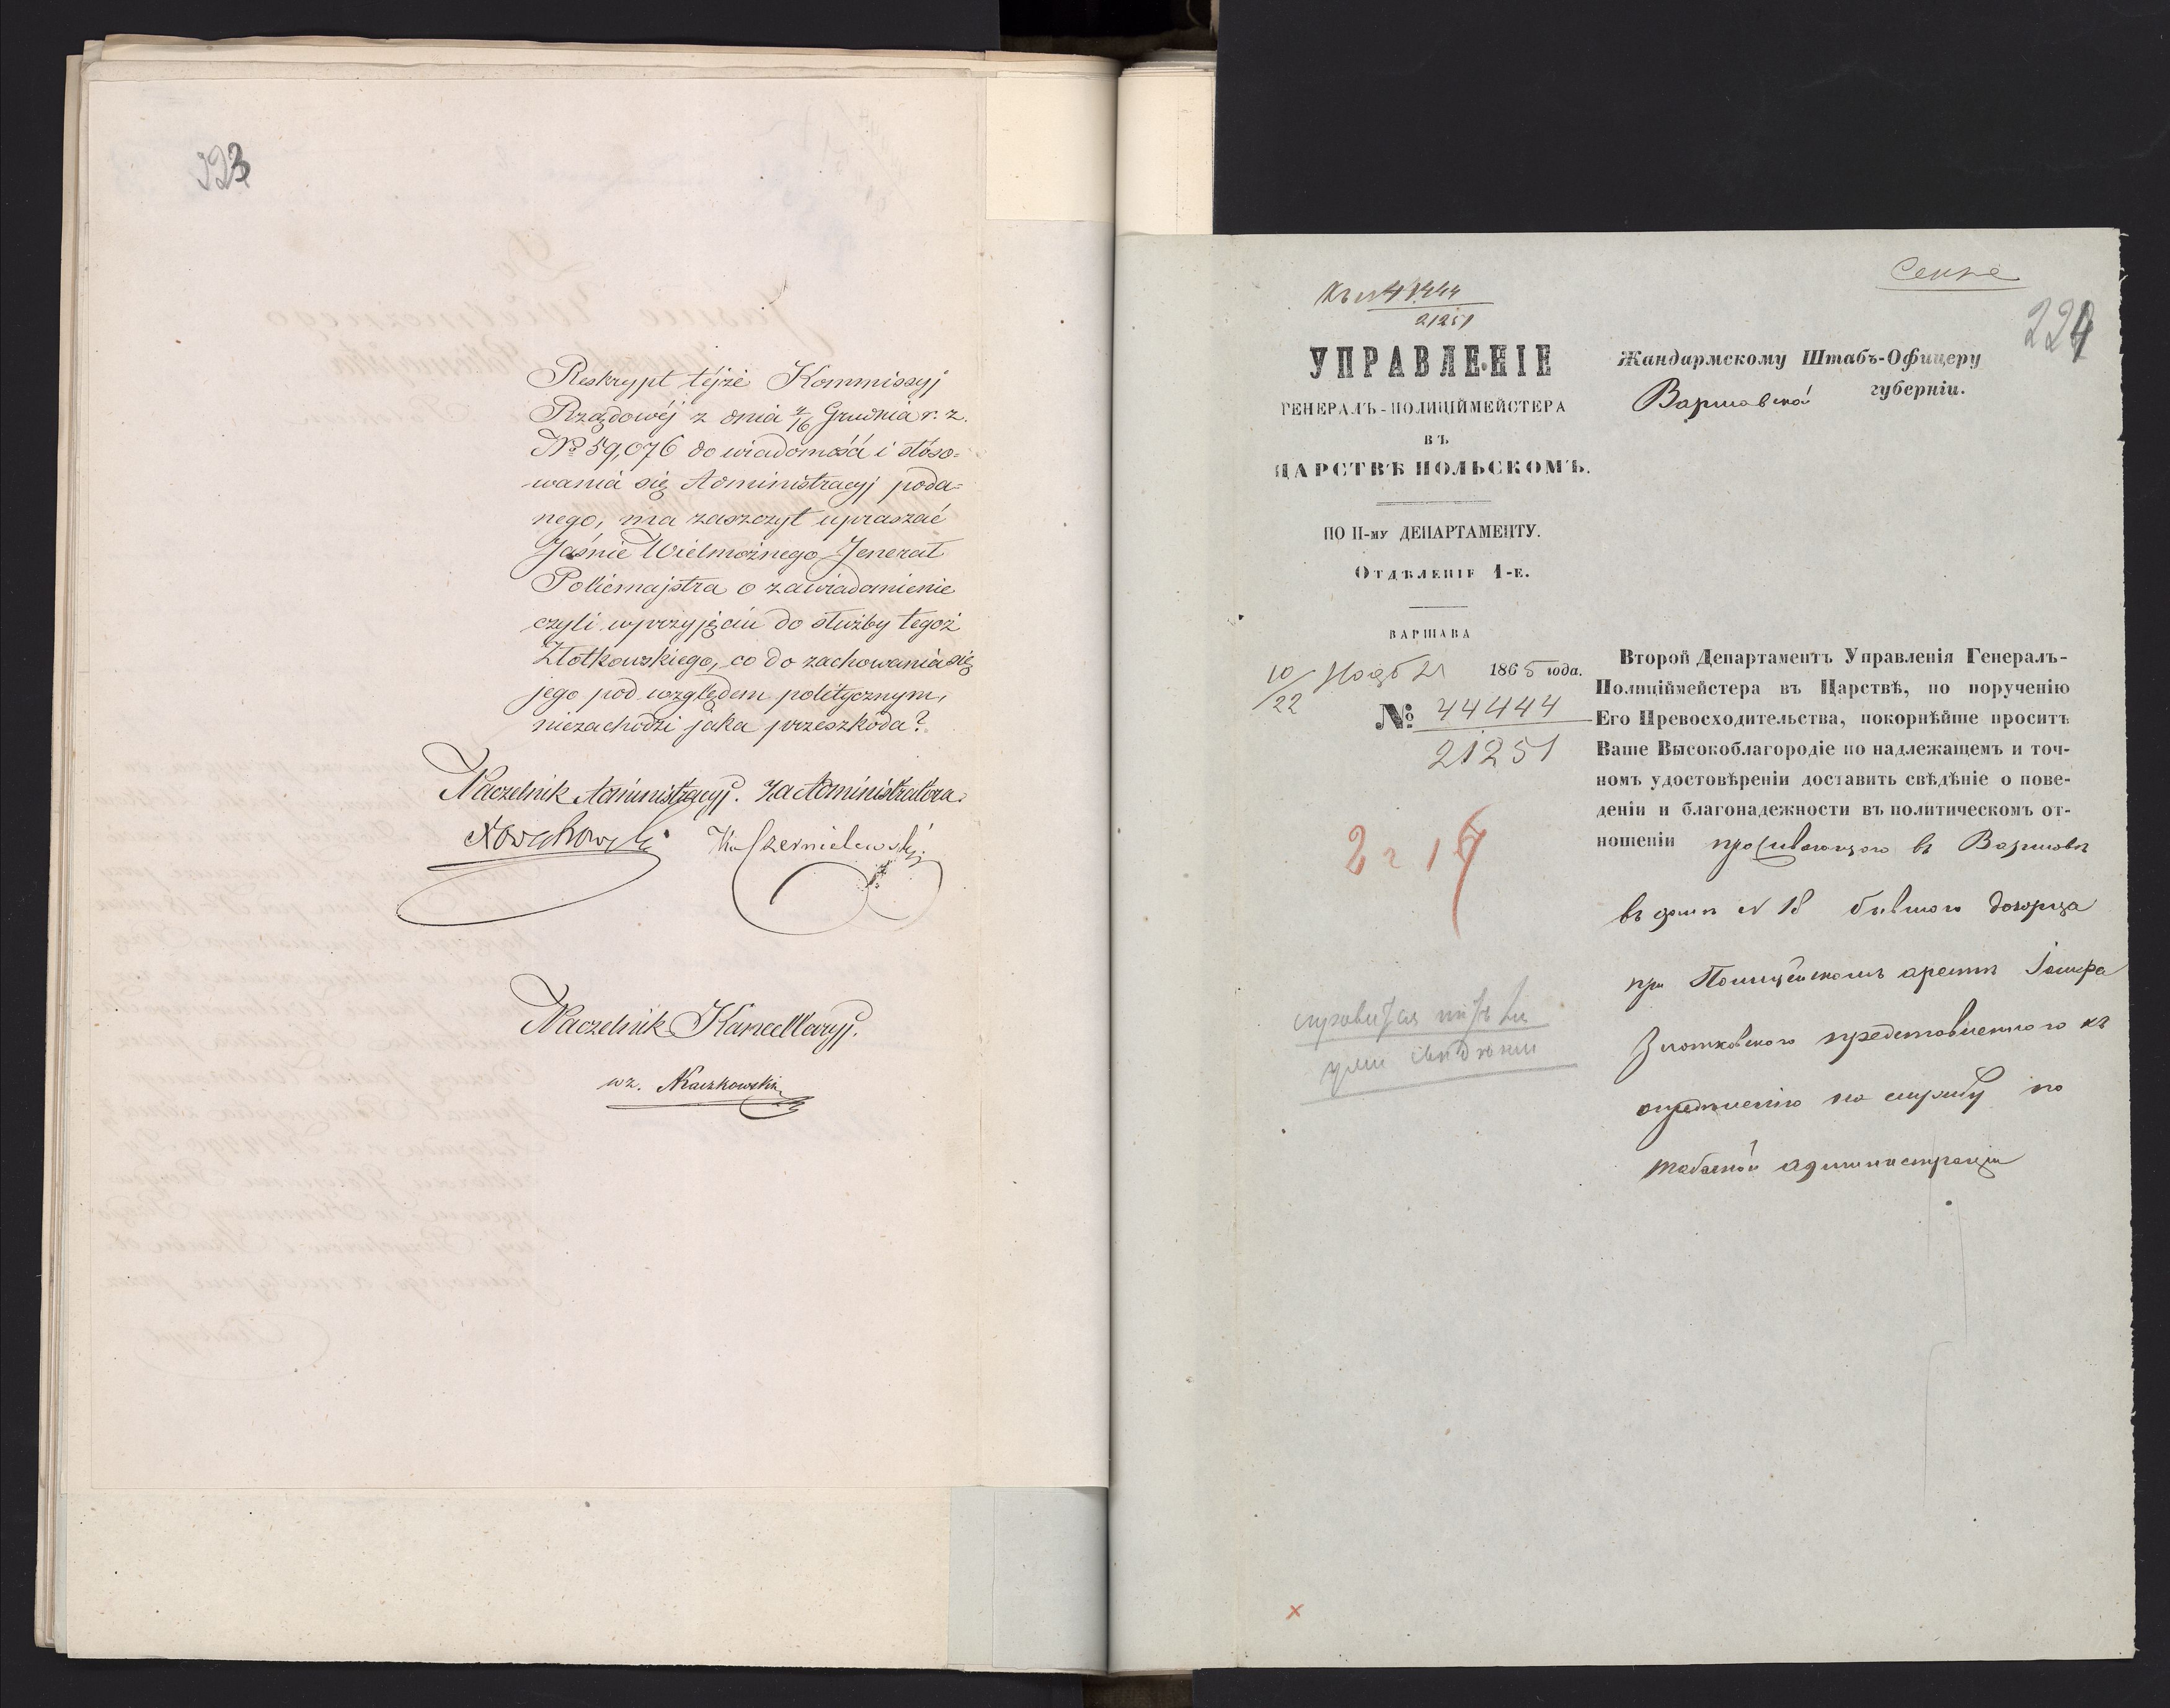 223
Reskrypt téjże Kommissyj
Rządowéj z dnia 4/16 Grudnia r. z.
№ 59,076 do wiadomości i stóso=
wania się Administracyj poda=
nego, ma zaszczyt upraszać
Jaśnie Wielmożnego Jenerał
Policmajstra o zawiadomienie
czyli w przyjęciu do służby tegoż
Złotkowskiego, co do zachowania się
jego pod względem politycznym,
niezachodzi jaka przeszkoda?
Naczelnik Administracyj. Za Administratora.
Czernielewski
Naczelnik Kancellaryj.
wz. Kaczkowski
224
21251
УПРАВЛЕНІЕ
ГЕНЕРАЛЪ-ПОЛИЦІЙМЕЙСТЕРА
ВЪ
ЦАРСТВѢ ПОЛЬСКОМЪ.
ПО II-му ДЕПАРТАМЕНТУ.
Отдѣленіе 1-е.
ВАРШАВА
10/22 1865 года.
№ 44444
21251
Жандармскому Штабъ-Офицеру
Варшавской губерніи.
Второй Департаментъ Управленія Генералъ-
Полиціймейстера въ Царствѣ, по порученію
Его Превосходительства, покорнѣйше проситъ
Ваше Высокоблагородіе по надлежащемъ и точ-
номъ удостовѣреніи доставить свѣдѣніе о пове-
деніи и благонадежности въ политическомъ от-
ношеніи проживающаго въ Варшавѣ
въ домѣ N 18 бывшаго дозорца
при Полицейскомъ арестѣ Іосифа
Злотковскаго представленнаго къ
опредѣленію на службу по
табачной администраціи